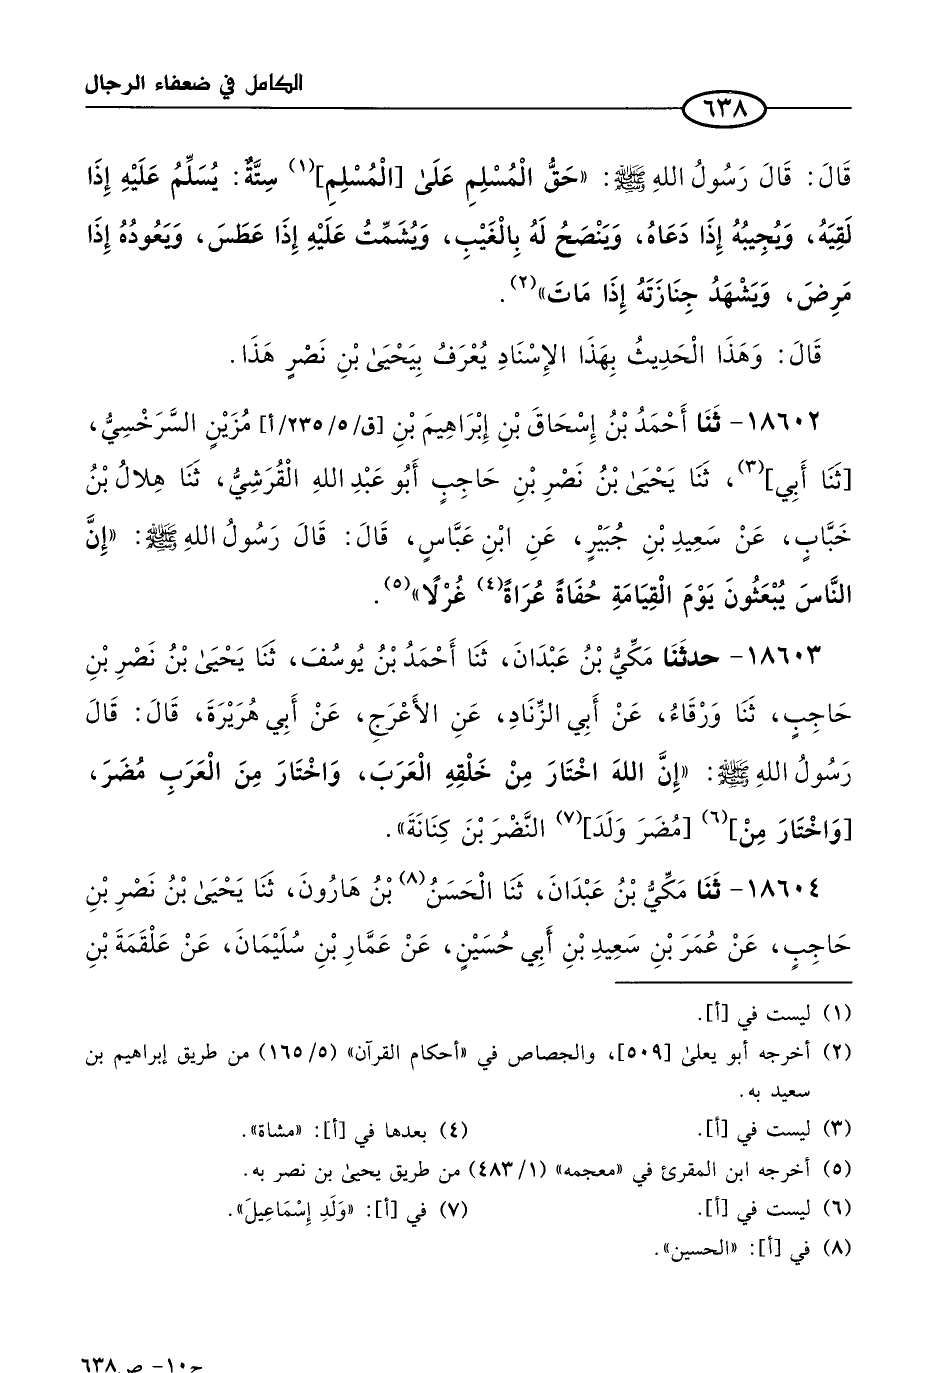 الكامل في ضعفاء الرجال
٦٣٨
قَالَ: قَالَ رَسُولُ اللهِ ﷺ: «حَقُّ الْمُسْلِمِ عَلَىٰ [الْمُسْلِمِ](١) سِتَّةٌ: يُسَلِّمُ عَلَيْهِ إِذَا
لَقِيَهُ، وَيُجِيبُهُ إِذَا دَعَاهُ، وَيَنْصَحُ لَهُ بِالْغَيْبِ، وَيُشَمِّتُ عَلَيْهِ إِذَا عَطَسَ، وَيَعُودُهُ إِذَا
مَرِضَ، وَيَشْهَدُ جِنَازَتَهُ إِذَا مَاتَ»(٢).
قَالَ: وَهَذَا الْحَدِيثُ بِهَذَا الإِسْنَادِ يُعْرَفُ بِيَحْيَىٰ بْنِ نَصْرٍ هَذَا.
١٨٦٠٢- ثَنَا أَحْمَدُ بْنُ إِسْحَاقَ بْنِ إِبْرَاهِيمَ بْنِ [ق/٢٣٥/٥/أ] مُزَيْنٍ السَّرَخْسِيُّ،
[ثَنَا أَبِي](٣)، ثَنَا يَحْيَىٰ بْنُ نَصْرِ بْنِ حَاجِبٍ أَبُو عَبْدِ اللهِ الْقُرَشِيُّ، ثَنَا هِلَالُ بْنُ
خَبَّابٍ، عَنْ سَعِيدِ بْنِ جُبَيْرٍ، عَنِ ابْنِ عَبَّاسٍ، قَالَ: قَالَ رَسُولُ اللهِ ﷺ: «إِنَّ
النَّاسَ يُبْعَثُونَ يَوْمَ الْقِيَامَةِ حُفَاةً عُرَاةً(٤) غُرْلًا»(٥).
١٨٦٠٣- حدثَنَا مَكِّيُّ بْنُ عَبْدَانَ، ثَنَا أَحْمَدُ بْنُ يُوسُفَ، ثَنَا يَحْيَىٰ بْنُ نَصْرِ بْنِ
حَاجِبٍ، ثَنَا وَرْقَاءُ، عَنْ أَبِي الزِّنَادِ، عَنِ الأَعْرَجِ، عَنْ أَبِي هُرَيْرَةَ، قَالَ: قَالَ
رَسُولُ اللهِ ﷺ: «إِنَّ اللهَ اخْتَارَ مِنْ خَلْقِهِ الْعَرَبَ، وَاخْتَارَ مِنَ الْعَرَبِ مُضَرَ،
[وَاخْتَارَ مِنْ](٦) [مُضَرَ وَلَدَ](٧) النَّضْرَ بْنَ كِنَانَةَ».
١٨٦٠٤- ثَنَا مَكِّيُّ بْنُ عَبْدَانَ، ثَنَا الْحَسَنُ(٨) بْنُ هَارُونَ، ثَنَا يَحْيَىٰ بْنُ نَصْرِ بْنِ
حَاجِبٍ، عَنْ عُمَرَ بْنِ سَعِيدِ بْنِ أَبِي حُسَيْنٍ، عَنْ عَمَّارِ بْنِ سُلَيْمَانَ، عَنْ عَلْقَمَةَ بْنِ
(١) ليست في [أ].
(٢) أخرجه أبو يعلىٰ [٥٠٩]، والجصاص في «أحكام القرآن» (٥/ ١٦٥) من طريق إبراهيم بن
سعيد به.
(٣) ليست في [أ]. (٤) بعدها في [أ]: «مشاة».
(٥) أخرجه ابن المقرئ في «معجمه» (١/ ٤٨٣) من طريق يحيىٰ بن نصر به.
(٦) ليست في [أ]. (٧) في [أ]: «وَلَدِ إِسْمَاعِيلَ».
(٨) في [أ]: «الحسين».
ج١٠- ص٦٣٨